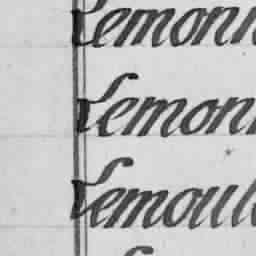 Lemonn
Lemonn
Lemoul